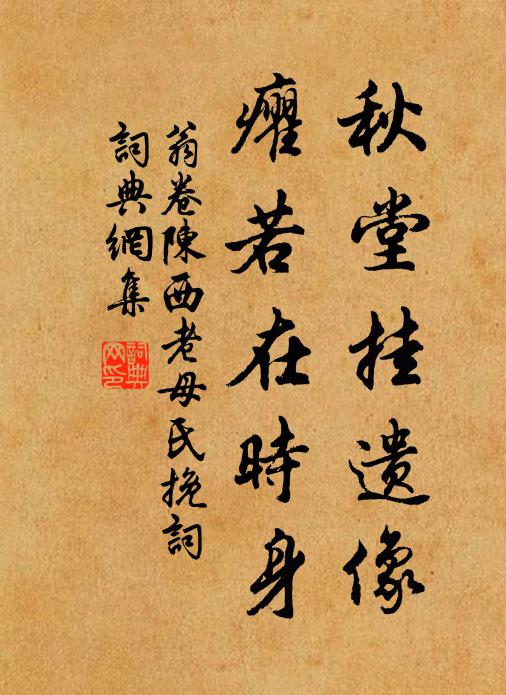 秋堂挂遗像
癯若在時身
翁卷陳西老母氏挽詞
詞典網集
詞典网印